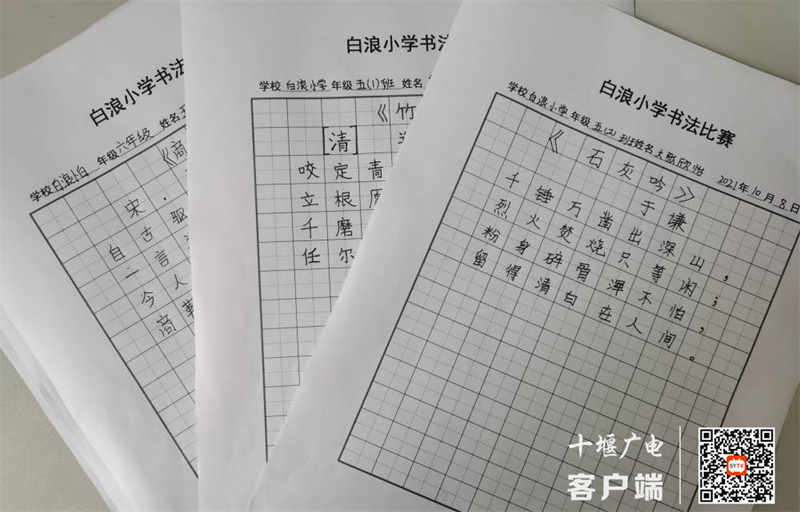 白浪小学书法
学校 白浪小白 年级 六年级 姓名
《商
宋·
自古驱
一言
今人
商鞅
白浪小学书法
学校 白浪小学 年级 五(1)班 姓名
《竹
[清]
咬定青
立根原
千磨
任尔
白浪小学书法比赛
学校 白浪小学 年级 五(2)班 姓名 欣怡 2021年10月8日
《石灰吟》
于谦
千锤万凿出深山，
烈火焚烧只等闲；
粉身碎骨渾不怕，
留得清白在人间。
十堰广电
客户端
SYTV